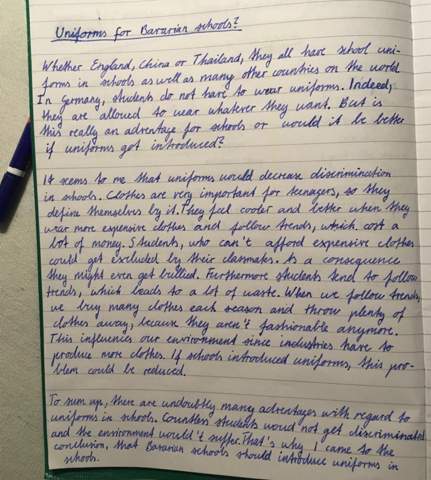 Uniforms for Bararian schools?
Whether England, China or Thailand, they all have school uni-
forms in schools as well as many other countries on the world.
In Germany, students do not have to wear uniforms. Indeed,
they are allowed to wear whatever they want. But is
this really an adventage for schools or would it be better
if uniforms got introduced?
It seems to me that uniforms would decrease discrimination
in schools. Clothes are very important for teenagers, so they
define themselves by it. They feel cooler and better when they
wear more expensive clothes and follow trends, which cost a
lot of money. Students, who can't afford expensive clothes
could get excluded by their classmates. As a consequence
they might even get bullied. Furthermore students tend to follow
trends, which leads to a lot of waste. When we follow trends,
we buy many clothes each season and throw plenty of
clothes away, because they aren't fashionable anymore.
This influences our environment since industries have to
produce more clothes. If schools introduced uniforms, this pro-
blem could be reduced.
To sum up, there are undoubtly many advantages with regard to
uniforms in schools. Countless students would not get discriminated
and the environment would't suffer. That's why I came to the
conclusion, that Bavarian schools should introduce uniforms in
schools.